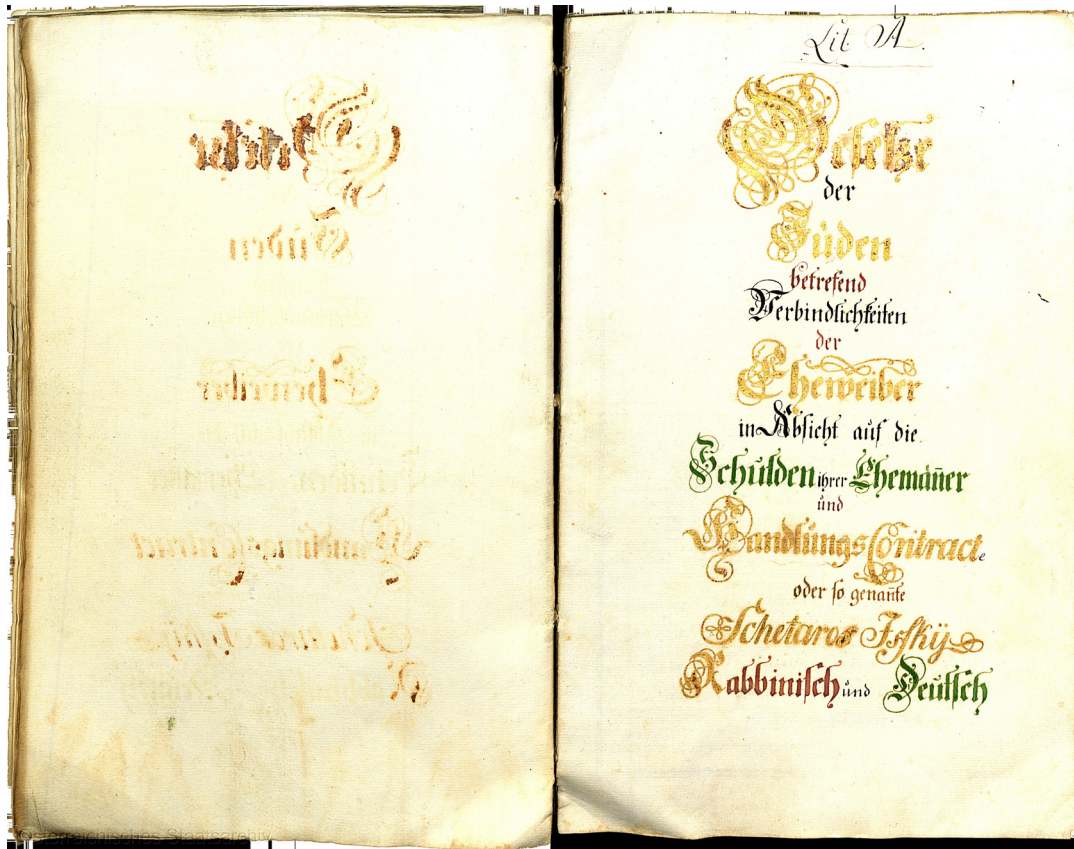 Lit. A.
Gesetze
der
Jüden
betrefend
Verbindlichkeiten
der
Eheweiber
in Absicht auf die
Schulden ihrer Ehemañer
und
HandlungsContracte
oder so genañte
Schetaros Isskÿ
Rabbinisch und Deutsch
Österreichisches Staatsarchiv